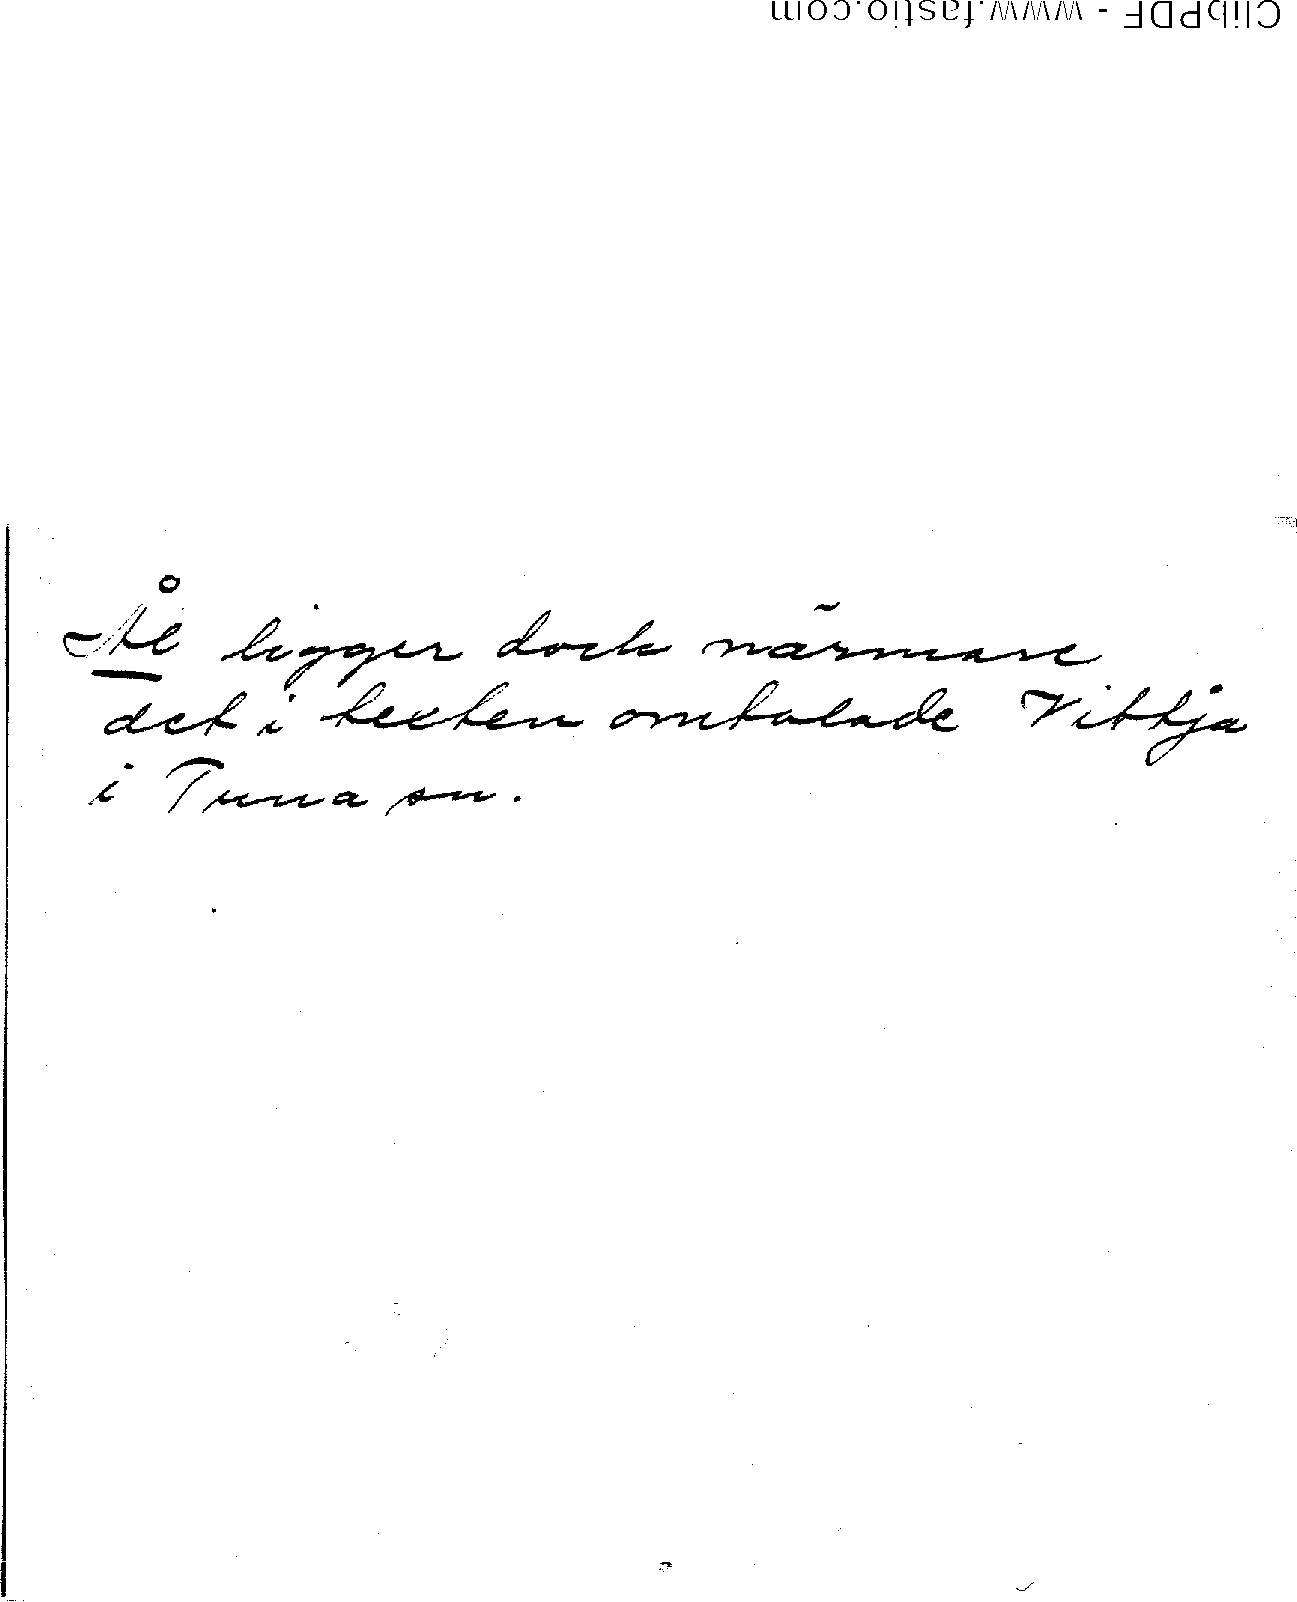 ClibPDF - www.fastio.com
Ål ligger dock närmare
det i texten omtalade Vittja
i Tuna sn.